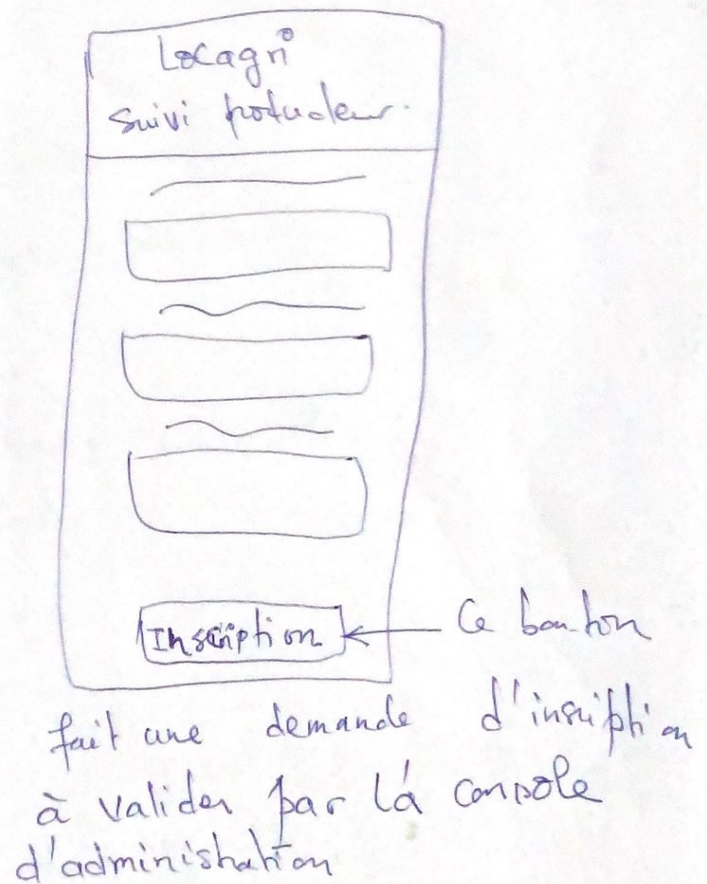 Locagri
Suivi
Inscription
Ce bouton
fait une demande d'inscription
à valider par la console
d'administration